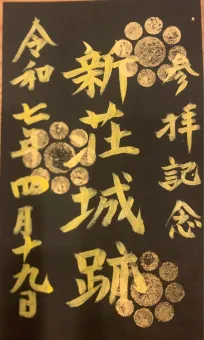 参拝記念
新荘城跡
令和七年四月十九日